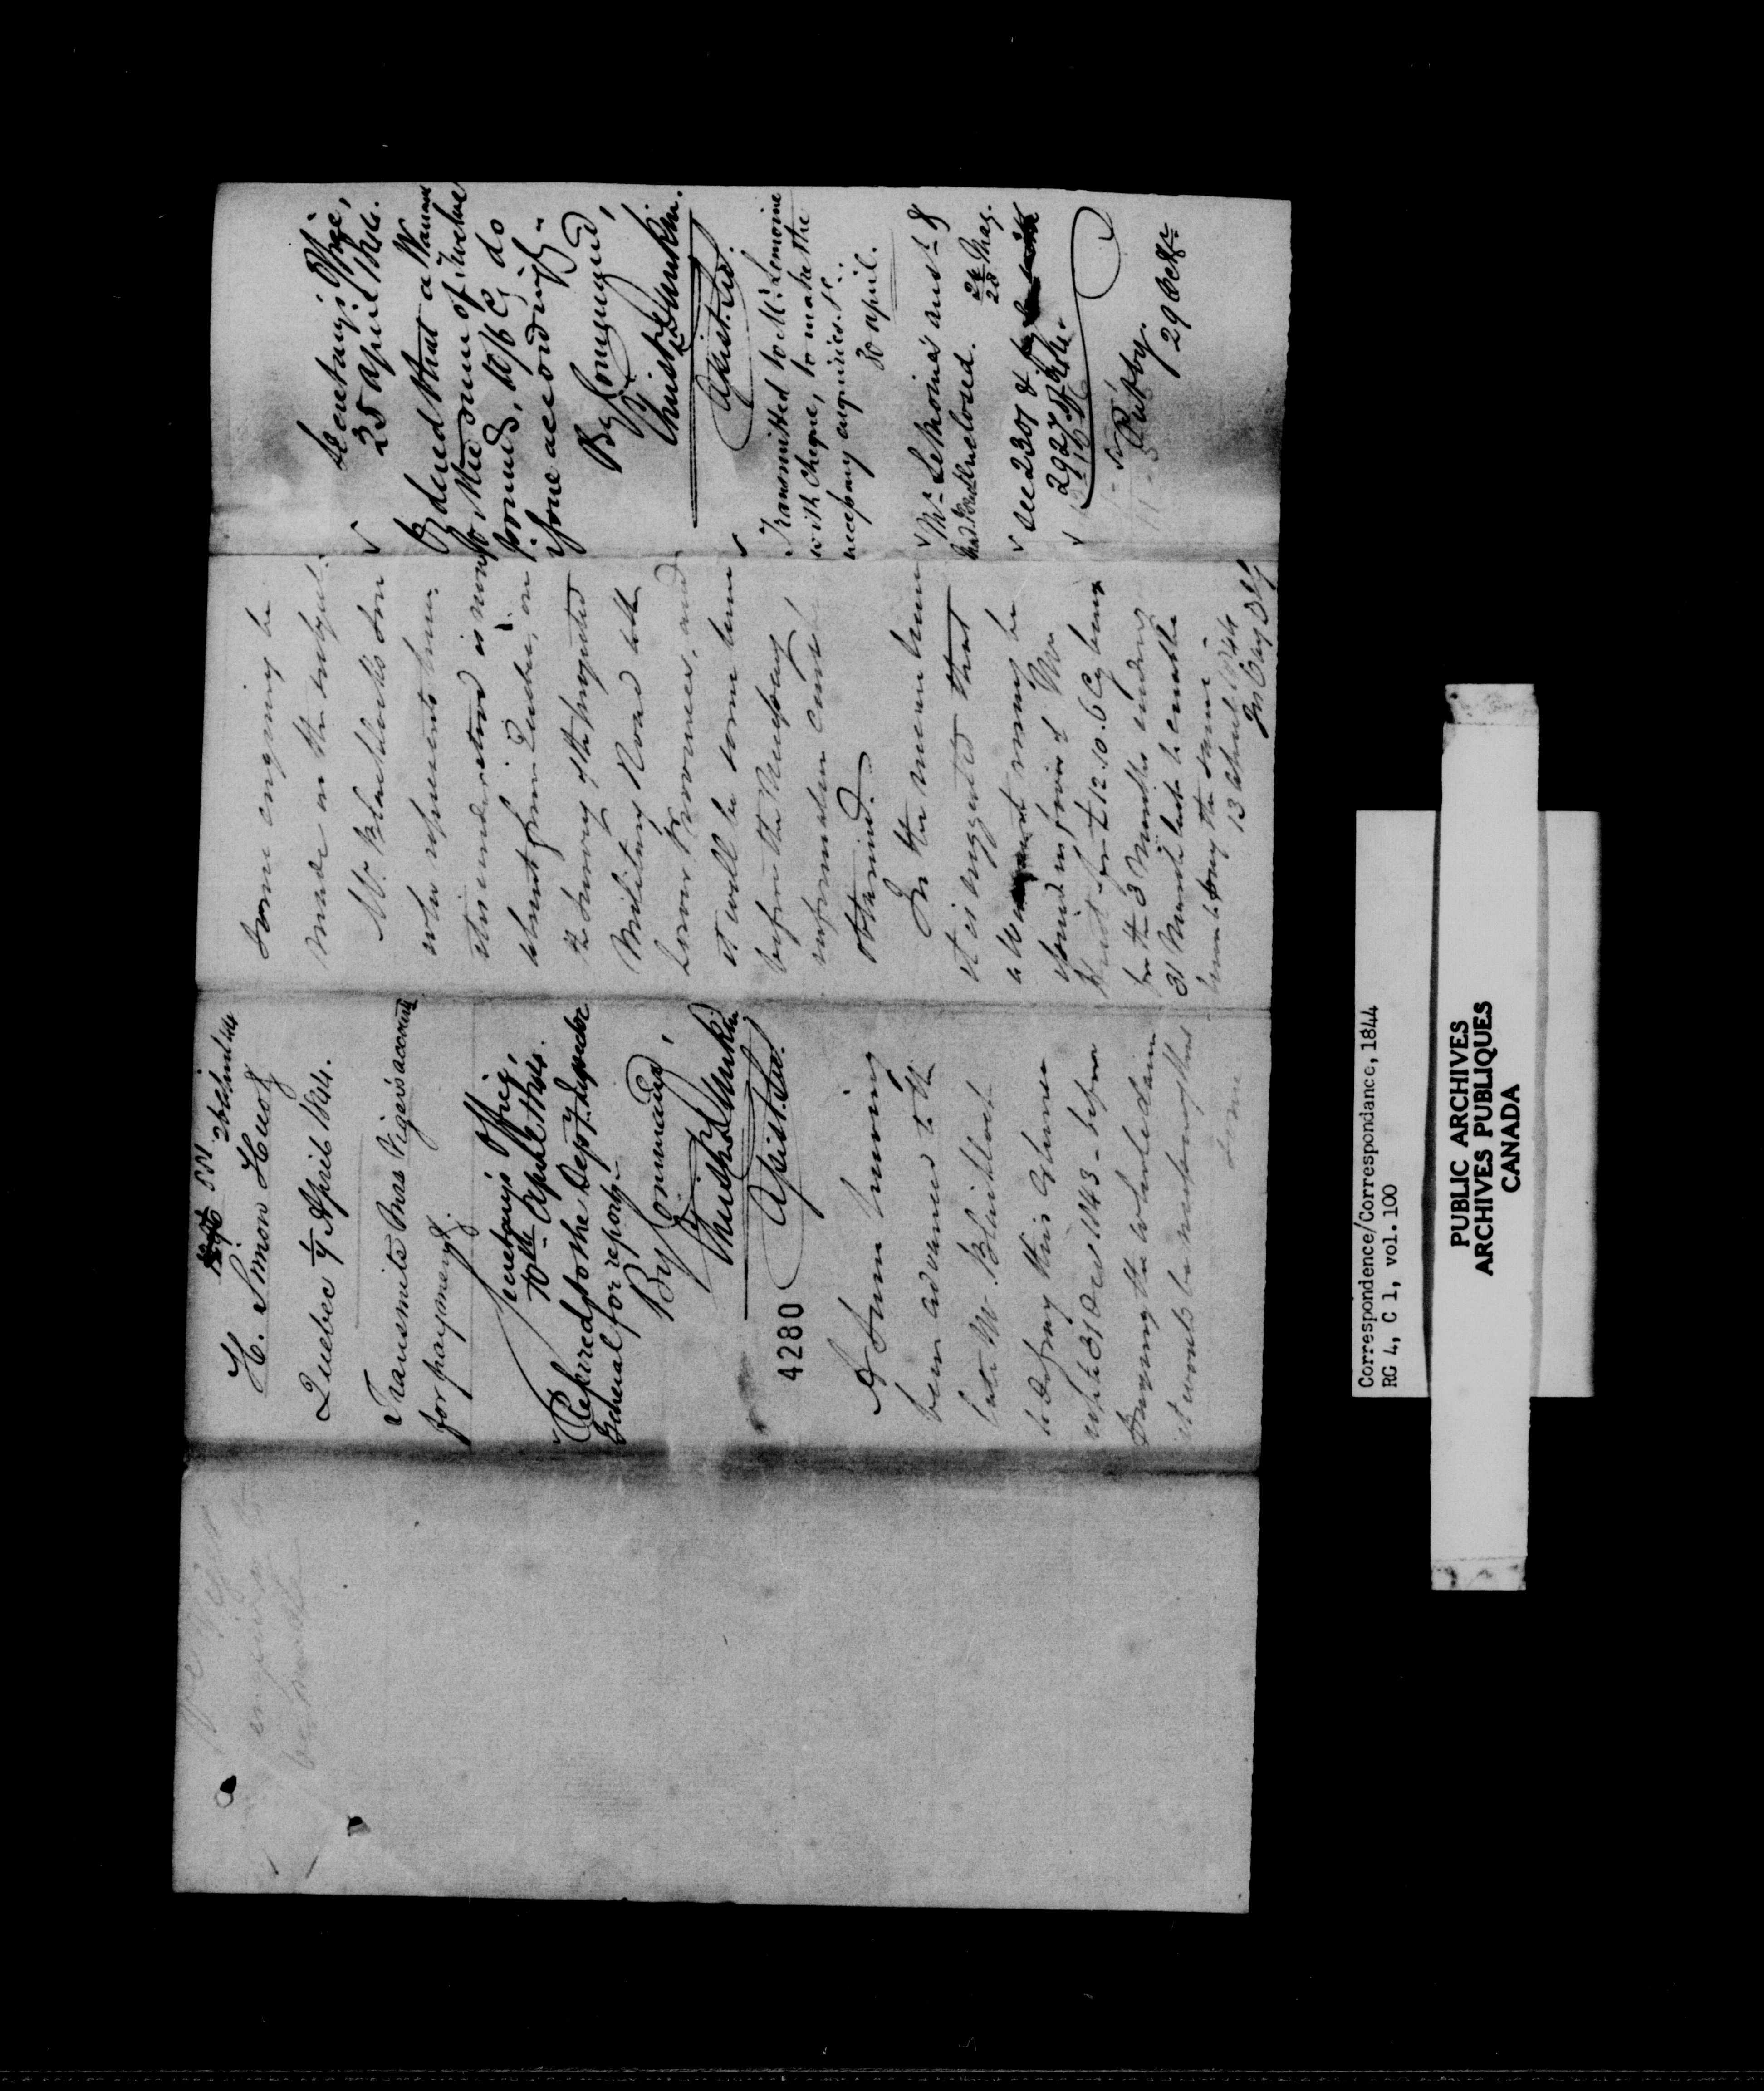 H. Simon Huot
Quebec 1/9 April 1844.
Transmits Mrs Viger's account
for payment.
Secretary's Office,
10th April 1844.
Referred to the Depy. Inspector
General for report.
By Command,
Assist. Sec.
4280
A Sum having
been advanced to the
late Mr. Blaiklock
to defray this Annuity
up to 31 Decr 1843 - before
paying the whole claim
it would be necessary that
some
some enquiry be
made on the subject.
Mr. Blaiklock's Son
who represents him
it is understood is now
absent from Quebec, on
a Survey of the projected
Military Road to the
Lower Provinces, and
it will be some time
before the necessary
information can be
obtained.
In the mean time
it is suggested that
a Warrant may be
issued in favor of Mr
Huot for £12.10.6 Cy being
for the 3 Months ending
31 March last to enable
him to pay the same
13 April 1844
Secretary's Office,
25 April 1844.
Ordered that a Warrant
for the sum of Twelve
pounds, 10/6 Cy do
issue accordingly.
By Command,
Assist. Sec.
Transmitted to Mr. Lemoine
with Cheque, to make the
necessary enquiries &c.
30 April.
Mr. LeMoine's ansr. of
enclosed. 24/28 May.
see 2301 &
2927 of 1844
Put by.
29 Octr.
enquiries to
be made
Correspondence/Correspondance, 1844
RG 4, C 1, vol. 100
PUBLIC ARCHIVES
ARCHIVES PUBLIQUES
CANADA